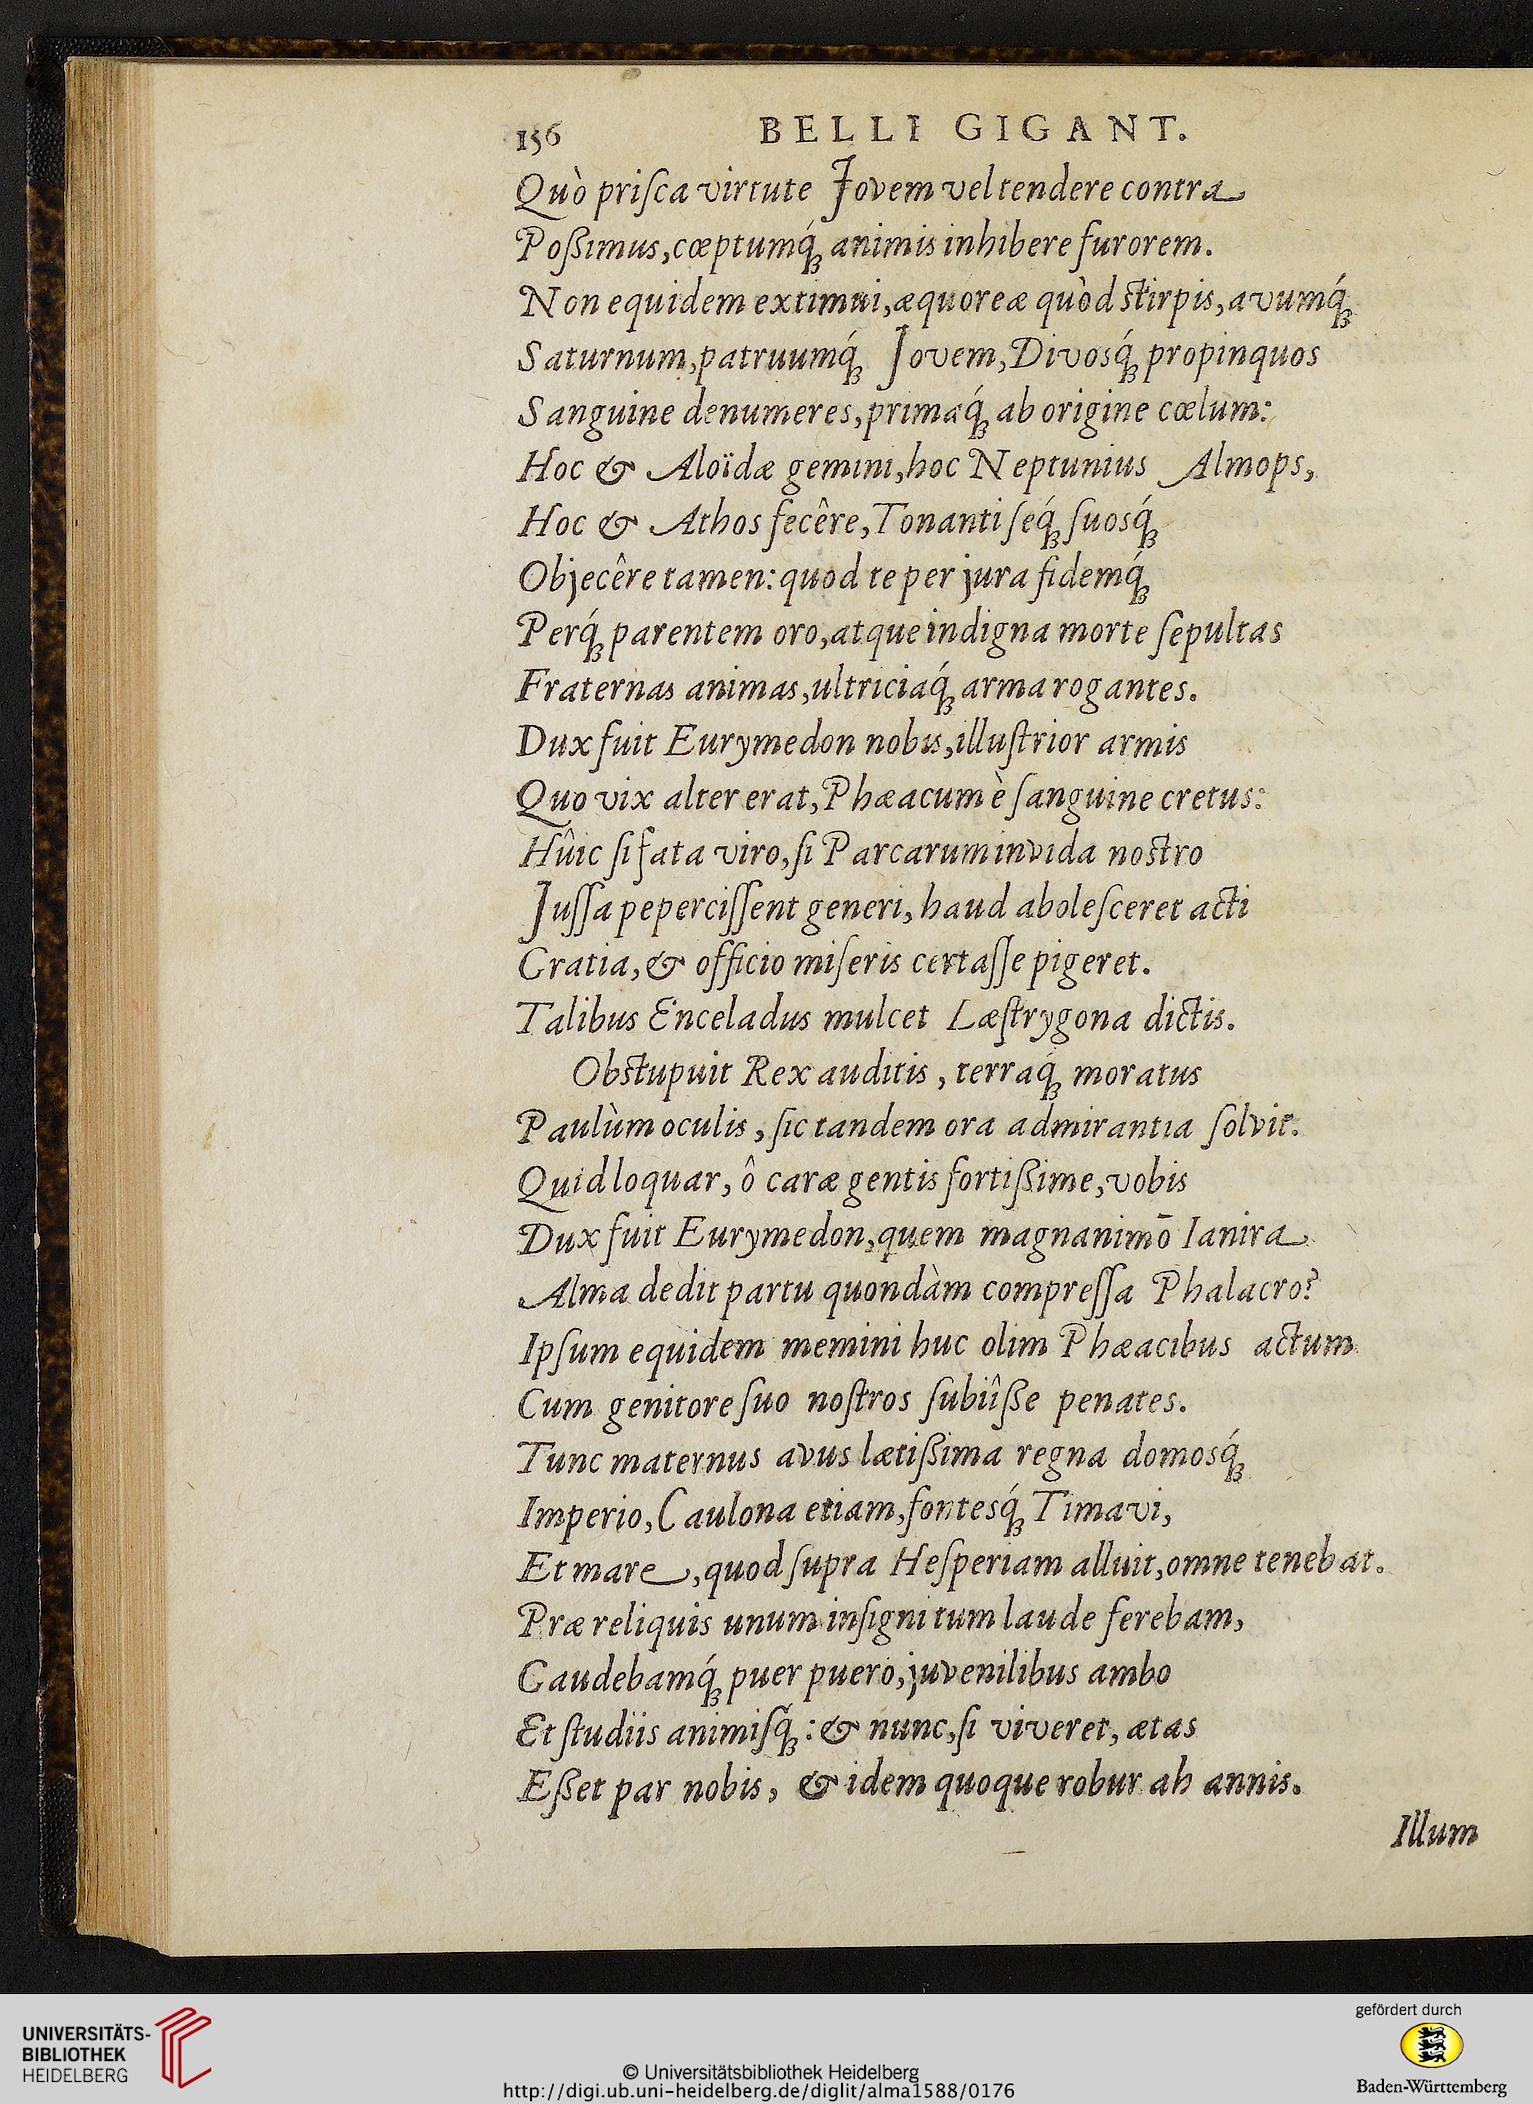 156 BELLI GIGANT.
Quò priſca virtute Jovem vel tendere contra
Poßimus, cœptumq́ꝫ animis inhibere furorem.
Non equidem extimui, æquoreæ quòd stirpis, avumq́ꝫ
Saturnum, patruumq́ꝫ Jovem, Divosq́ꝫ propinquos
Sanguine denumeres, primaq́ꝫ ab origine cœlum:
Hoc & Aloïdæ gemini, hoc Neptunius Almops,
Hoc & Athos fecêre, Tonanti ſeq́ꝫ ſuosq́ꝫ
Objecêre tamen: quod te per jura fidemq́ꝫ
Perq́ꝫ parentem oro, atque indigna morte ſepultas
Fraternas animas, ultriciaq́ꝫ arma rogantes.
Dux fuit Eurymedon nobis, illuſtrior armis
Quo vix alter erat, Phæacum è ſanguine cretus:
Hûic ſi fata viro, ſi Parcarum invida nostro
Juſſa peperciſſent generi, haud aboleſceret acti
Gratia, & officio miſeris certaſſe pigeret.
Talibus Enceladus mulcet Læſtrygona dictis.
Obstupuit Rex auditis, terraq́ꝫ moratus
Paulùm oculis, ſic tandem ora admirantia ſolvit.
Quid loquar, ô caræ gentis fortißime, vobis
Dux fuit Eurymedon, quem magnanimō Ianira
Alma dedit partu quondàm compreſſa Phalacro?
Ipſum equidem memini huc olim Phæacibus actum
Cum genitore ſuo noſtros ſubiîße penates.
Tunc maternus avus lætißima regna domosq́ꝫ
Imperio, Caulona etiam, fontesq́ꝫ Timavi,
Et mare, quod ſupra Heſperiam alluit, omne tenebat.
Præ reliquis unum inſigni tum laude ferebam,
Gaudebamq́ꝫ puer puero, juvenilibus ambo
Et ſtudiis animiſq́ꝫ: & nunc, ſi viveret, ætas
Eßet par nobis, & idem quoque robur ab annis.
Illum
UNIVERSITÄTS-
BIBLIOTHEK
HEIDELBERG
© Universitätsbibliothek Heidelberg
http://digi.ub.uni-heidelberg.de/diglit/alma1588/0176
gefördert durch
Baden-Württemberg